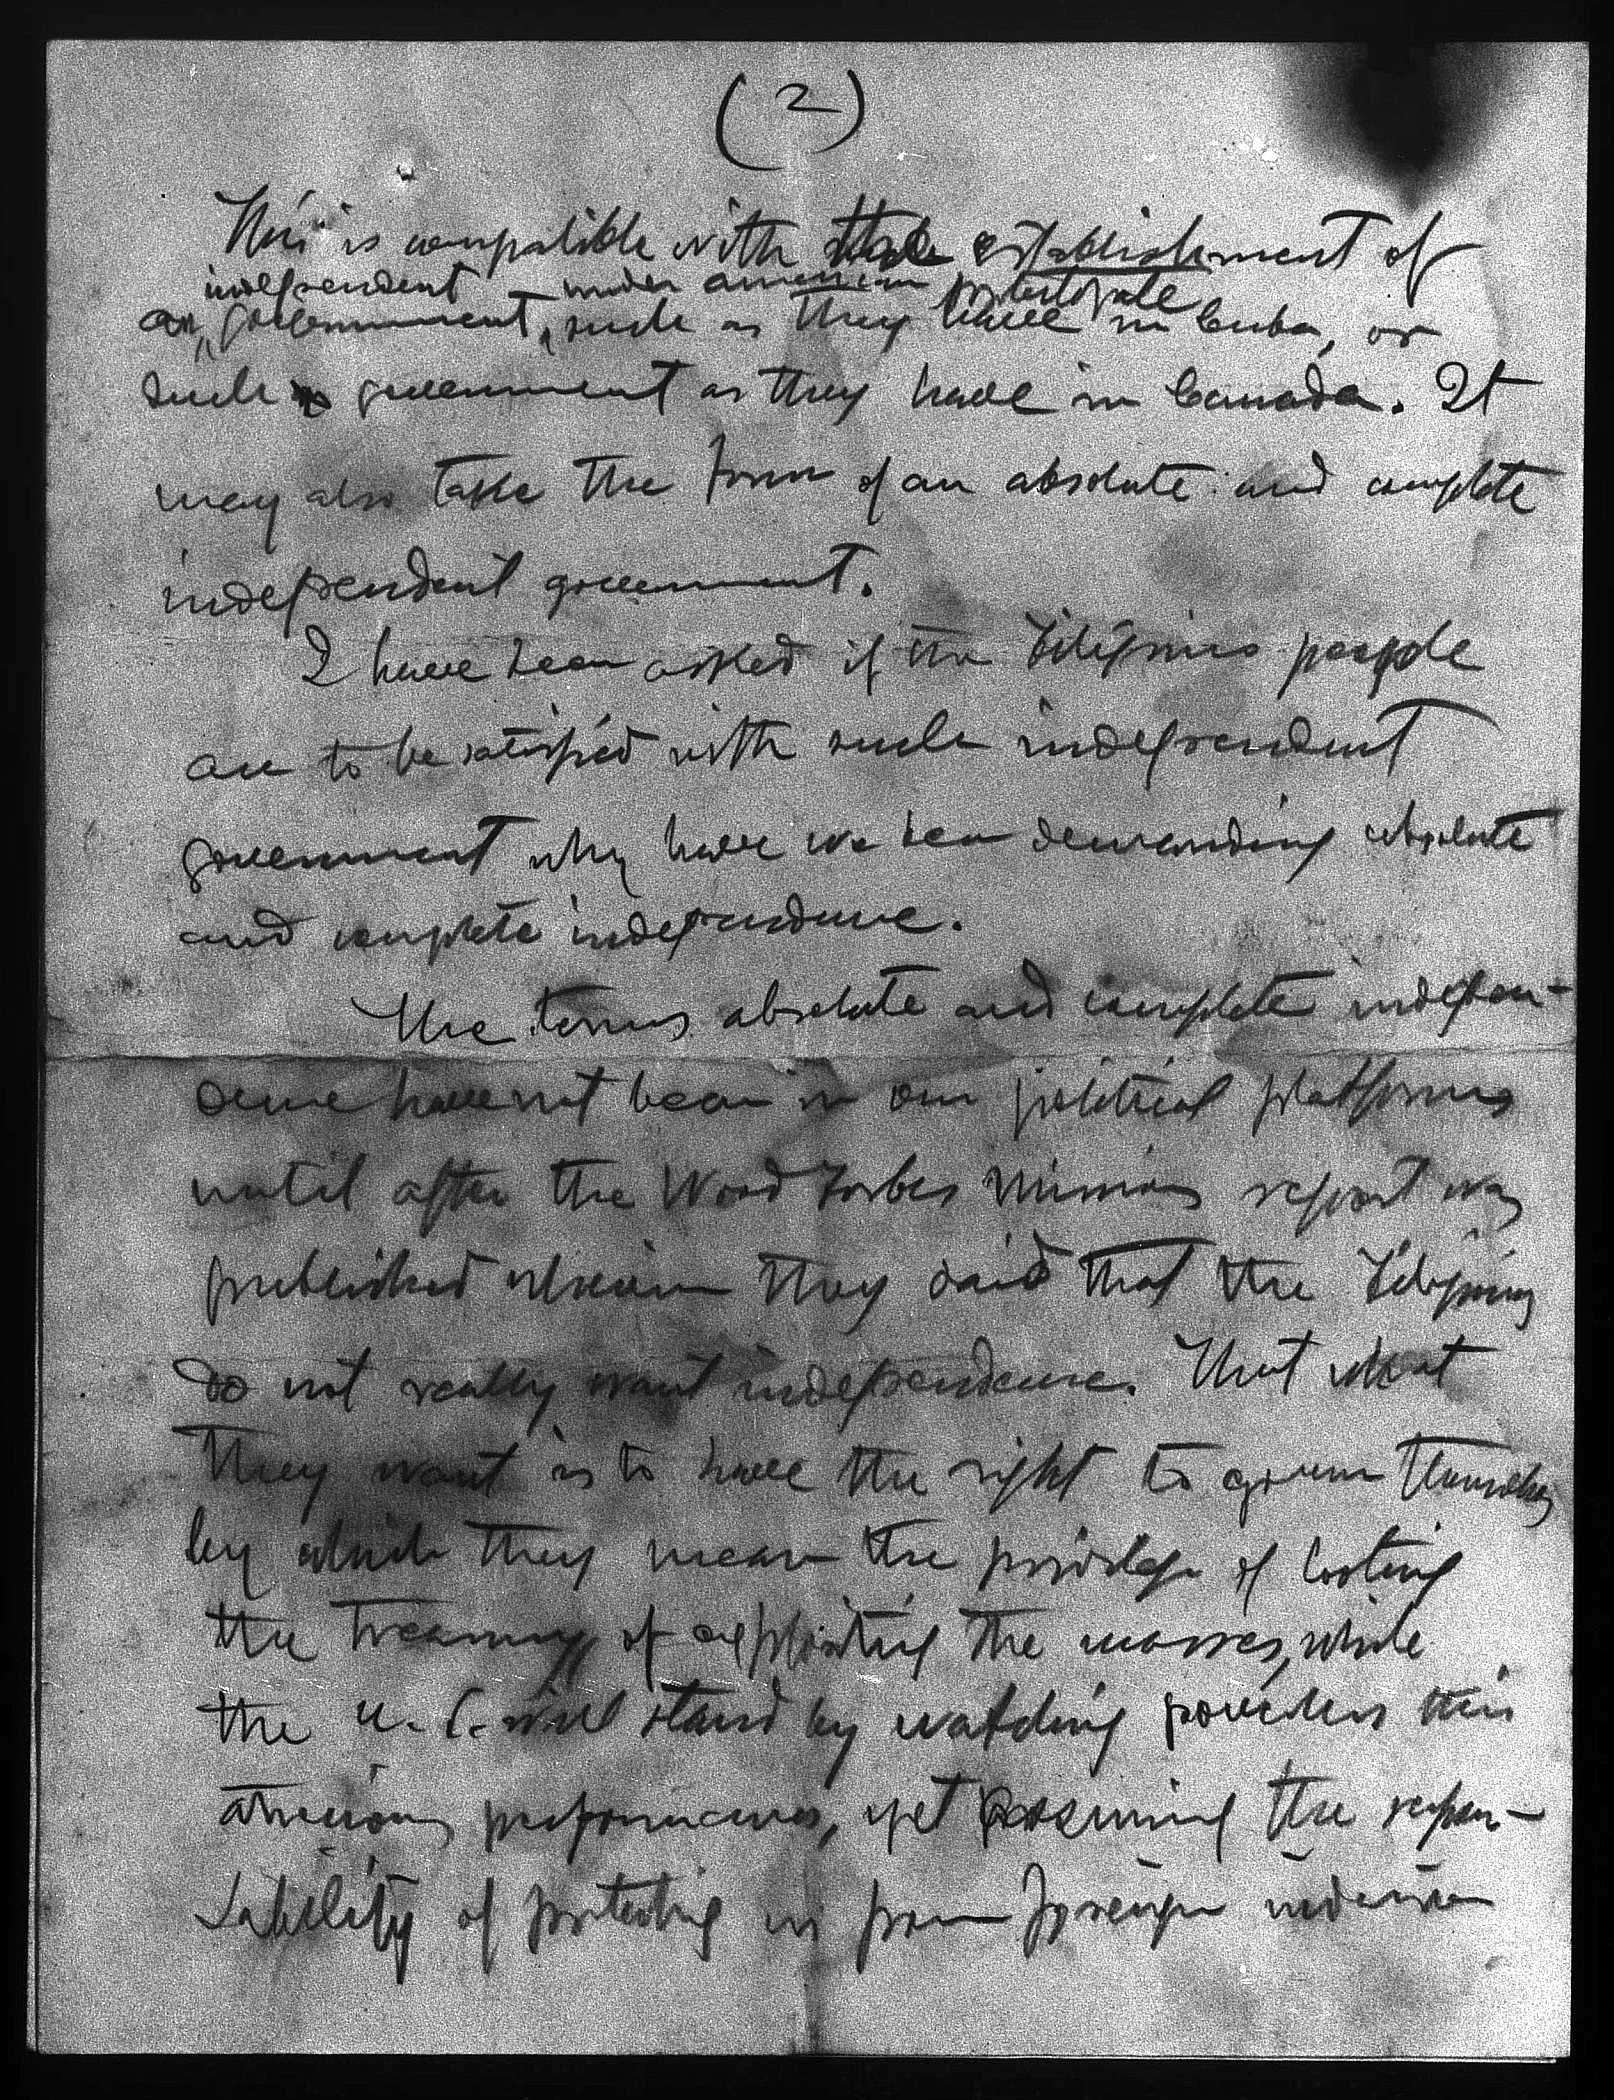 (2)
This is compatible with the establishment of
independent under american protectorate
an government, such as they have in Cuba, or
such government as they have in Canada. It
may also take the form of an absolute and complete
independent government.
I have been asked if the Filipino people
are to be satisfied with such independent
government why have we been demanding absolute
and complete independence.
The terms absolute and complete indepen-
dence have not been in our political platforms
until after the Wood Forbes Mission report was
published wherein they said that the Filipinos
do not really want independence. That what
they want is to have the right to govern themselves
by which they mean the privilege of looting
the treasury of exploiting the masses, while
the U. S. will stand by watching powerless this
atrocious performances, yet assuming the respon-
sability of protecting us from foreign